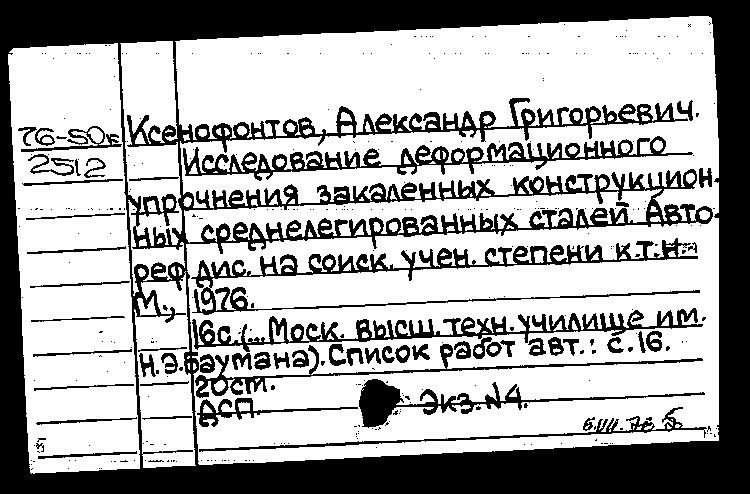 76-50к Ксенофонтов, Александр Григорьевич.
2512 Исследование деформационного
упрочнения закаленных конструкцион-
ных среднелегированных сталей. Авто-
реф дис. на соиск. учен. степени к.т.н.
М., 1976.
16с. (...Моск. высш. техн. училище им.
Н.Э.Баумана). Список работ авт.: с.16.
20см.
ДСП. Экз. N4.